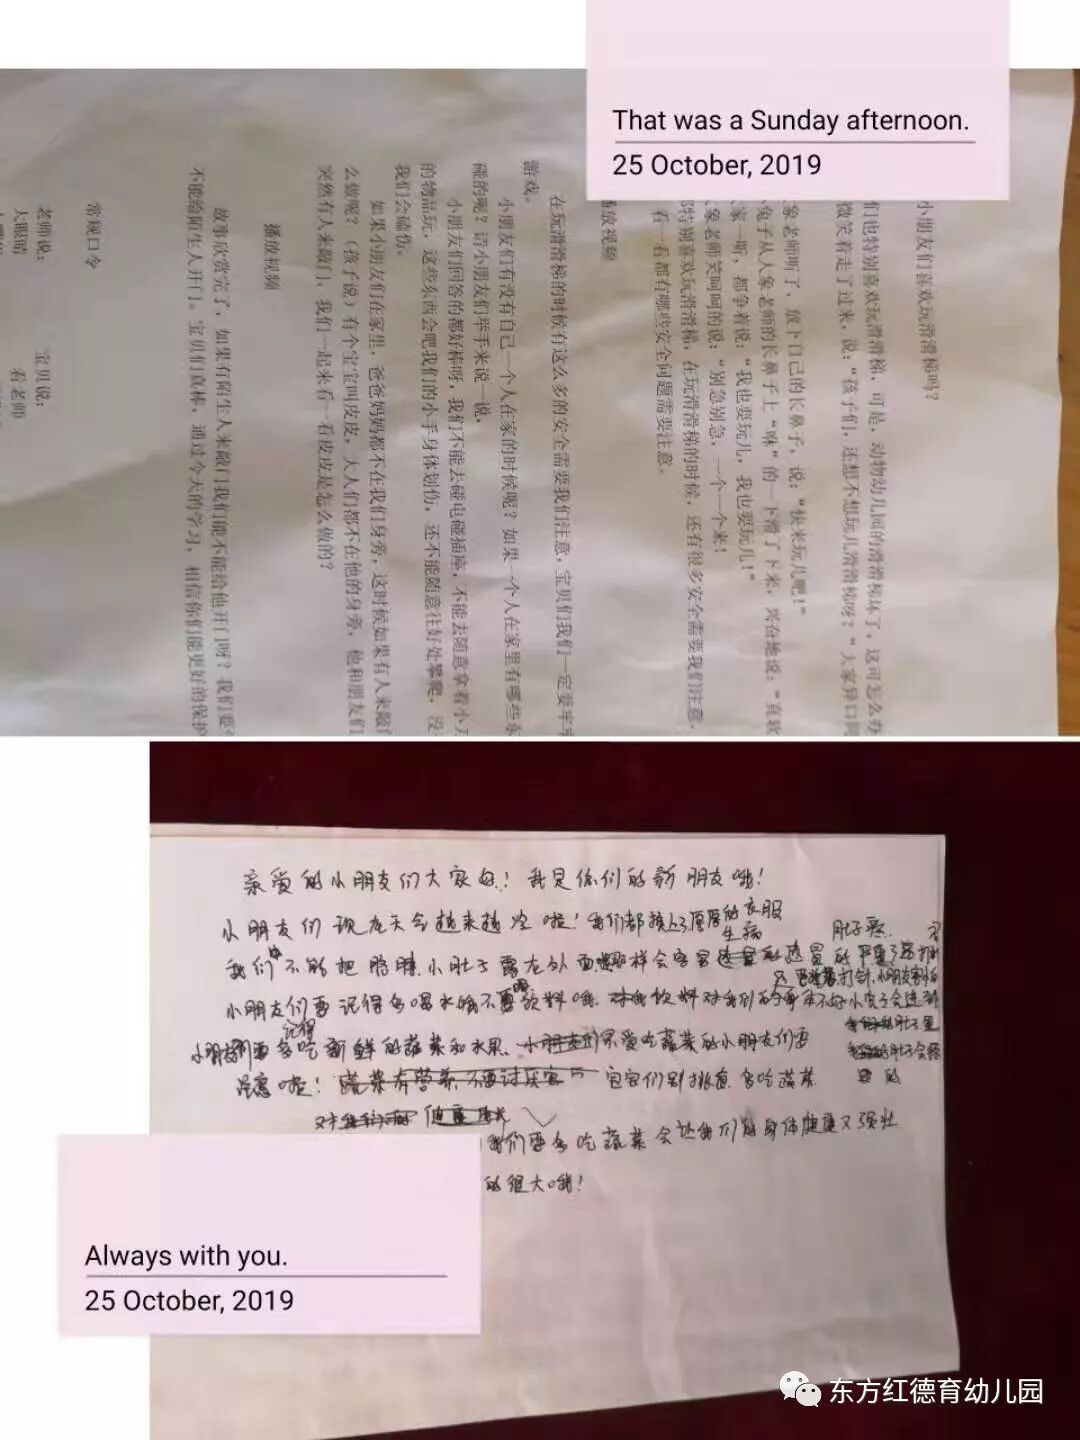 That was a Sunday afternoon.
25 October, 2019
小朋友们喜欢玩滑滑梯吗？
们也特别喜欢玩滑滑梯，可是，动物幼儿园的滑滑梯坏了，这可怎么办
微笑着走了过来，说：“孩子们，还想不想玩儿滑滑梯呀？”大家异口同
象老师听了，放下自己的长鼻子，说：“快来玩儿吧！”
兔子从大象老师的长鼻子上“咻”的一下滑了下来，兴奋地说：“真软
家一听，都争着说：“我也要玩儿，我也要玩儿！”
象老师笑呵呵的说：“别急别急，一个一个来！
都特别喜欢玩滑滑梯，在玩滑滑梯的时候，还有很多安全需要我们注意。
看一看都有哪些安全问题需要注意。
播放视频
在玩滑滑梯的时候有这么多的安全需要我们注意，宝贝们我们一定要牢牢
游戏。
小朋友们有没有自己一个人在家的时候呢？如果一个人在家里有哪些东
碰的呢？请小朋友们举手来说一说，
小朋友们回答的都好棒呀，我们不能去碰电碰插座，不能去随意拿着小刀
的物品玩，这些东西会吧我们的小手身体划伤，还不能随意往好处攀爬，没
我们会磕伤。
如果小朋友们在家里，爸爸妈妈都不在我们身旁，这时候如果有人来敲门
么做呢？（孩子说）有个宝宝叫皮皮，大人们都不在他的身旁，他和朋友们
突然有人来敲门，我们一起来看一看皮皮是怎么做的？
播放视频
故事欣赏完了，如果有陌生人来敲门我们能不能给他开门呀？我们要
不能给陌生人开门。宝贝们真棒，通过今天的学习，相信你们能更好的保护
常规口令
老师说： 宝贝说：
大眼睛 看老师
亲爱的小朋友们大家好！我是你们的新朋友哦！
小朋友们 现在天会越来越冷啦！我们都换上了厚厚的衣服
生病 肚子疼
我们 不能把胳膊、小肚子露在外面 那样会容易
打针，小朋友
小朋友们要记得多喝水哦不要喝饮料哦
记得
要多吃新鲜的蔬菜和水果、小朋友们不爱吃蔬菜的小朋友们要
注意啦！蔬菜有营养，不要讨厌它 宝宝们别挑食 多吃蔬菜
健康
我们要多吃蔬菜会让我们的身体健康又强壮
的很大哦！
Always with you.
25 October, 2019
东方红德育幼儿园